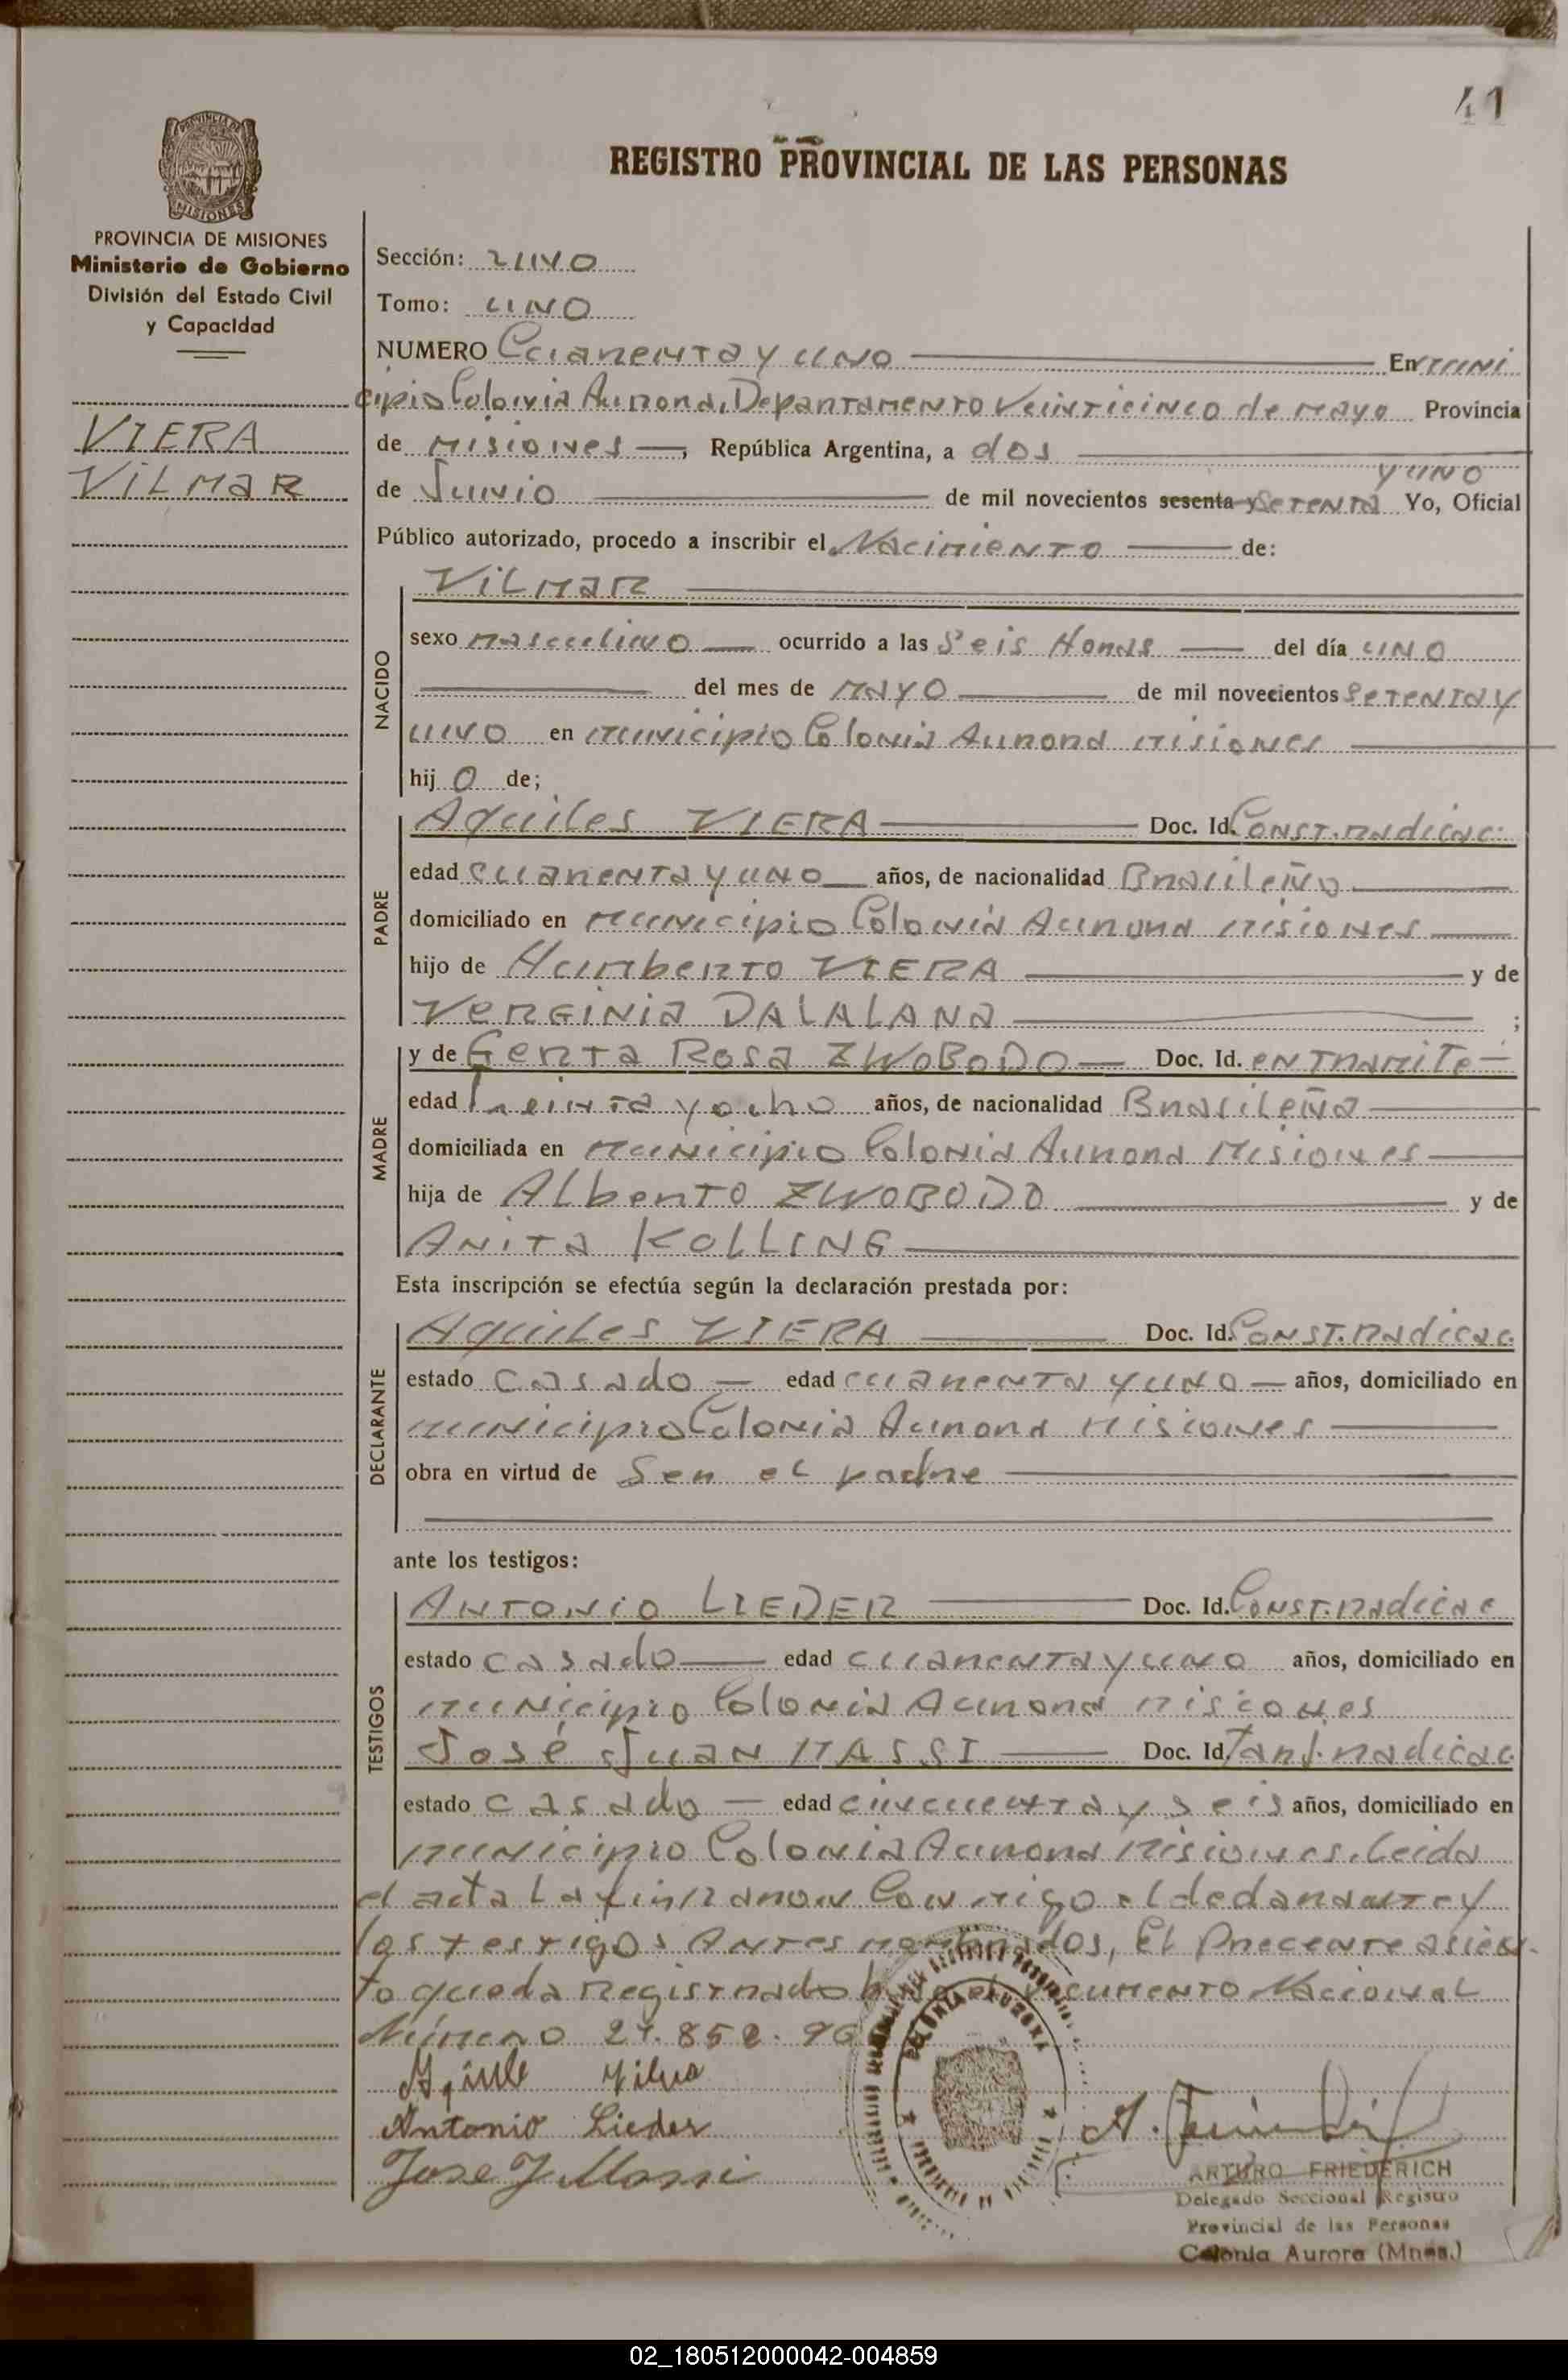 41
REGISTRO PROVINCIAL DE LAS PERSONAS
PROVINCIA DE MISIONES
Ministerio de Gobierno
División del Estado Civil
y Capacidad
VIERA
VILMAR
Sección: UNO
Tomo: UNO
NUMERO Cuarenta y UNO En muni
cipio Colonia Aurora, Departamento Veinticinco de mayo Provincia
de Misiones, República Argentina, a dos
de Junio de mil novecientos sesenta y Setenta y UNO Yo, Oficial
Público autorizado, procedo a inscribir el Nacimiento de:
NACIDO
VILMAR
sexo masculino ocurrido a las Seis Horas del día UNO
del mes de MAYO de mil novecientos Setenta y
uno en municipio Colonia Aurora misiones
hij o de;
PADRE
Aquiles VIERA Doc. Id. Const. radicac.
edad cuarenta y uno años, de nacionalidad Brasileño
domiciliado en municipio Colonia Aurora misiones
hijo de Humberto VIERA y de
VERGINIA DALALANA ;
MADRE
y de Gerta Rosa ZWOBODO Doc. Id. en Tramite
edad Treinta y ocho años, de nacionalidad Brasileña
domiciliada en municipio Colonia Aurora Misiones
hija de Alberto ZWOBODO y de
ANITA KOLLING
Esta inscripción se efectúa según la declaración prestada por:
DECLARANTE
Aquiles VIERA Doc. Id. Const. radicac.
estado casado edad cuarenta y uno años, domiciliado en
municipio Colonia Aurora Misiones
obra en virtud de Ser el padre
ante los testigos:
TESTIGOS
ANTONIO LIEDER Doc. Id. Const. radicac
estado casado edad cuarenta y uno años, domiciliado en
municipio Colonia Aurora misiones
José Juan MASSI Doc. Id. Tarj. radicac.
estado casado edad cincuenta y seis años, domiciliado en
municipio Colonia Aurora Misiones. Leida
el acta La firmaron Conmigo el declarante y
los testigos Antes nombrados, El Precente asien-
to queda Registrado bajo el Documento Nacional
Número 852. 96
COLONIA AURORA
Antonio Lieder
Jose J Massi
ARTURO FRIEDERICH
Delegado Seccional Registro
Provincial de las Personas
Colonia Aurora (Mnes.)
02_180512000042-004859